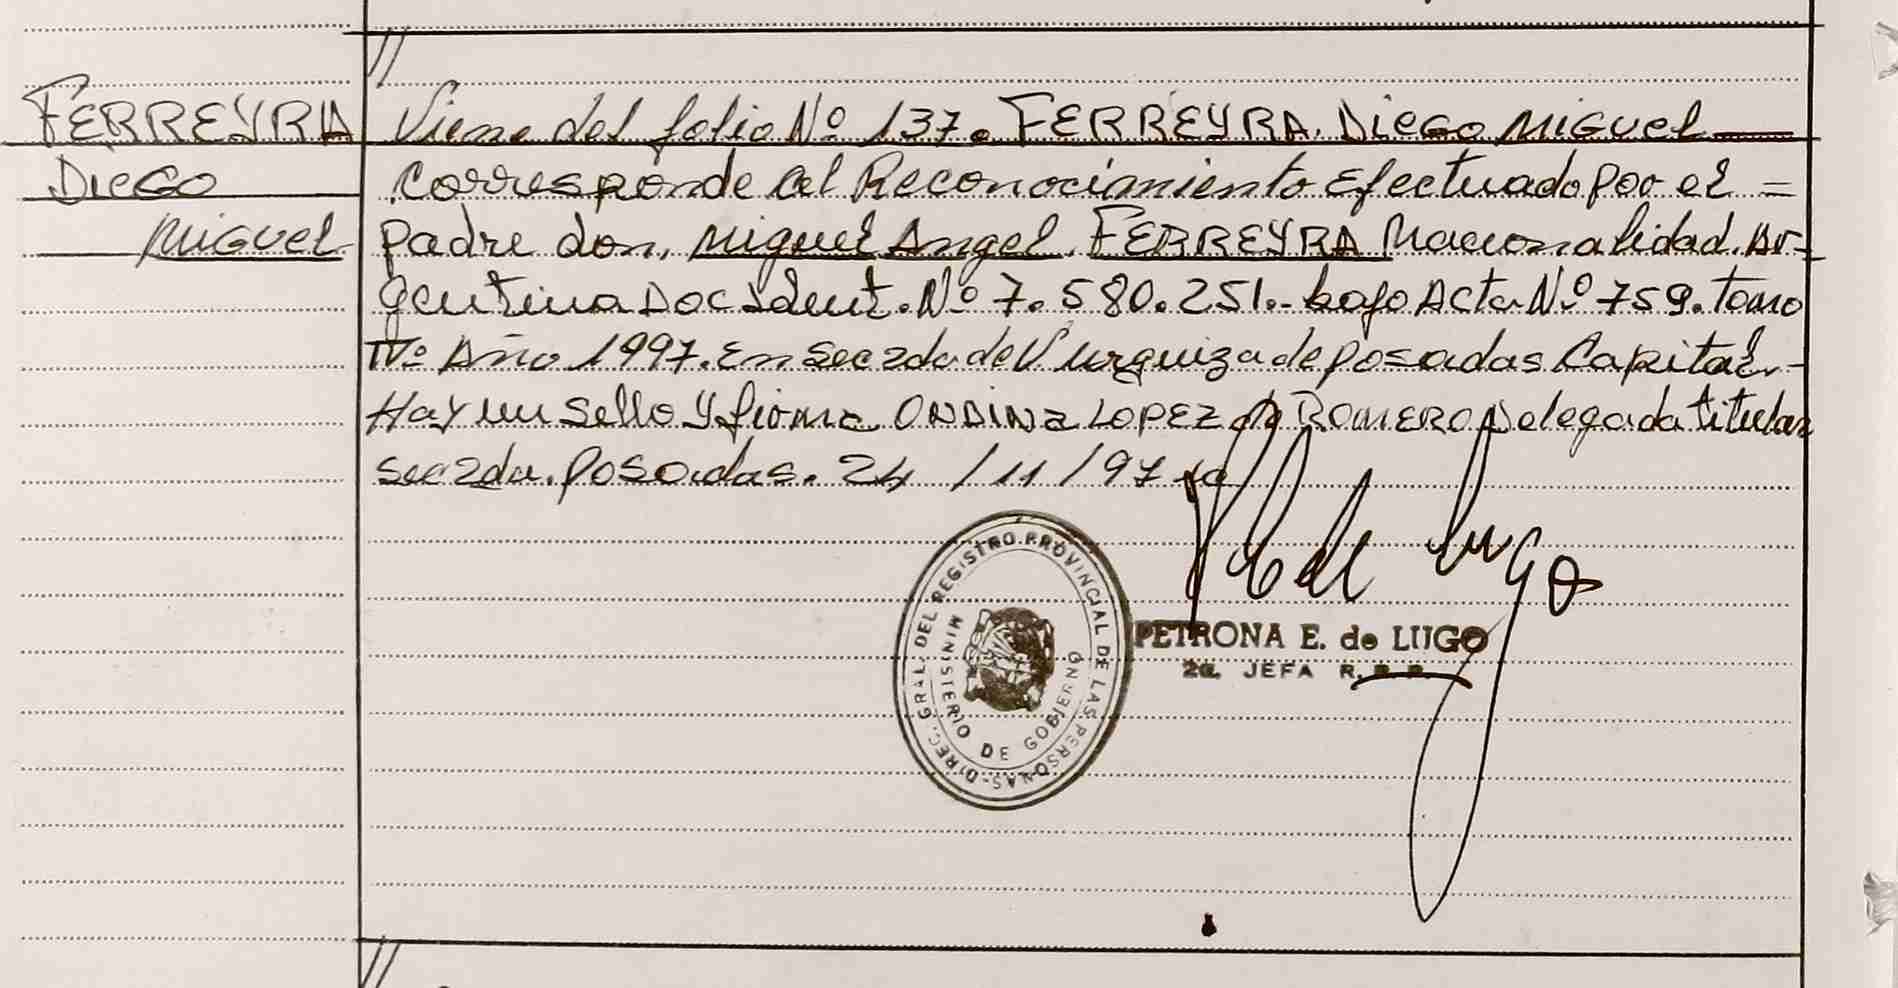 //
FERREYRA
Diego
Miguel
Viene del folio Nº 137. FERREYRA. Diego Miguel
corresponde al Reconocimiento Efectuado por el =
padre don, Miguel Angel FERREYRA Nacionalidad. Ar-
gentina Doc Ident. Nº 7.580.251.- bajo Acta Nº 759. tomo
IVº Año 1997. En Sec 2da de V Urquiza de posadas Capital-
Hay un Sello y firma ONDINA LOPEZ de ROMERO Delegada titular
sec 2da. posadas. 24 / 11 / 97
de Lugo
DIREC. GRAL. DEL REGISTRO PROVINCIAL DE LAS PERSONAS-
MINISTERIO DE GOBIERNO
PETRONA E. de LUGO
2a. JEFA R. P. P.
//